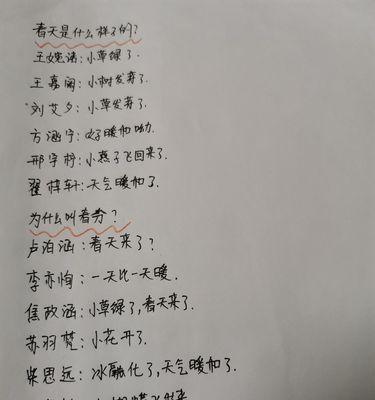 春天是什么样子的?
王婉诺:小草绿了.
王嘉阁:小树发芽了.
刘艾夕:小草发芽了.
方涵宁:好暖和呦.
邢宇柠:小燕子飞回来了.
翟梓轩:天气暖和了.
为什么叫春分?
卢泊涵:春天来了?
李亦恂:一天比一天暖.
焦政涵:小草绿了,春天来了.
苏羽梵:小花开了.
柴思远:冰融化了,天气暖和了.